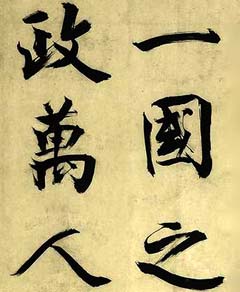 一國之
政萬人